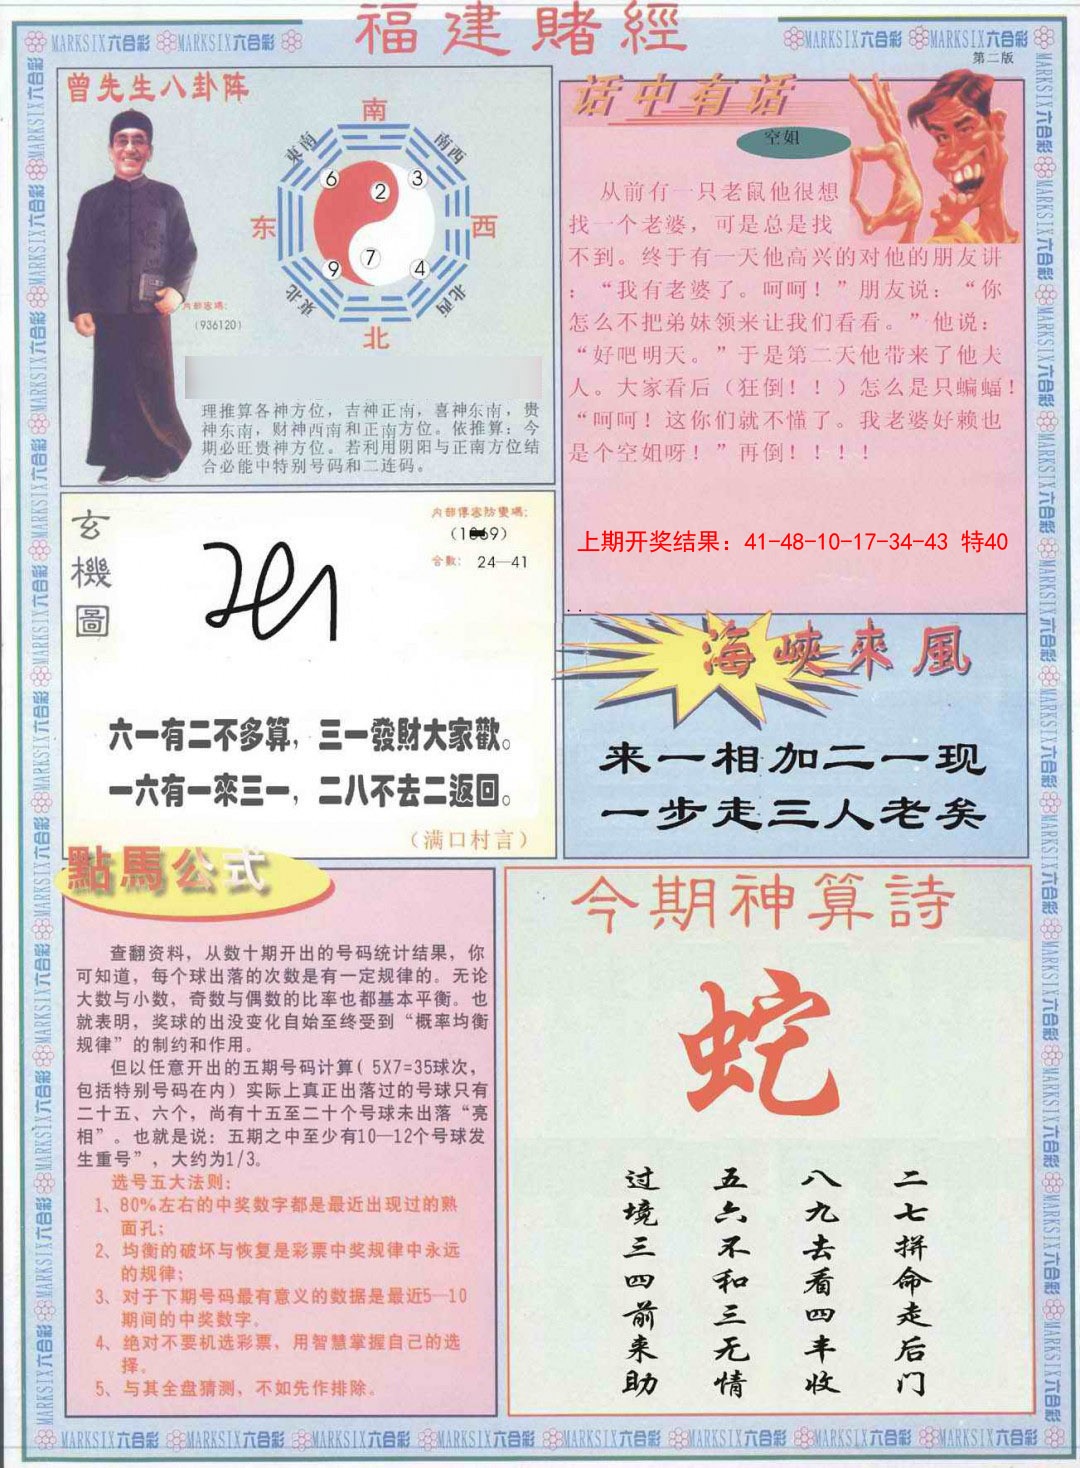 福建賭經
MARKSIX六合彩 MARKSIX六合彩
MARKSIX六合彩 MARKSIX六合彩
第二版
曾先生八卦阵
南
東南
南西
6
2
3
东
西
9
7
4
東北
北西
北
内部密碼:
(936120)
理推算各神方位，吉神正南，喜神东南，贵
神东南，财神西南和正南方位。依推算：今
期必旺贵神方位。若利用阴阳与正南方位结
合必能中特别号码和二连码。
话中有话
空姐
从前有一只老鼠他很想
找一个老婆，可是总是找
不到。终于有一天他高兴的对他的朋友讲
：“我有老婆了。呵呵！”朋友说：“你
怎么不把弟妹领来让我们看看。”他说：
“好吧明天。”于是第二天他带来了他夫
人。大家看后（狂倒！！）怎么是只蝙蝠！
“呵呵！这你们就不懂了。我老婆好赖也
是个空姐呀！”再倒！！！！
上期开奖结果：41-48-10-17-34-43 特40
玄機圖
内部傳密防變碼:
合數: 24—41
六一有二不多算，三一發財大家歡。
一六有一來三一，二八不去二返回。
（满口村言）
海峽來風
来一相加二一现
一步走三人老矣
點馬公式
查翻资料，从数十期开出的号码统计结果，你
可知道，每个球出落的次数是有一定规律的。无论
大数与小数，奇数与偶数的比率也都基本平衡。也
就表明，奖球的出没变化自始至终受到“概率均衡
规律”的制约和作用。
但以任意开出的五期号码计算( 5X7=35球次，
包括特别号码在内）实际上真正出落过的号球只有
二十五、六个，尚有十五至二十个号球未出落“亮
相”。也就是说：五期之中至少有10—12个号球发
生重号”，大约为1/3。
选号五大法则:
1、80%左右的中奖数字都是最近出现过的熟
面孔；
2、均衡的破坏与恢复是彩票中奖规律中永远
的规律；
3、对于下期号码最有意义的数据是最近5—10
期间的中奖数字。
4、绝对不要机选彩票，用智慧掌握自己的选
择。
5、与其全盘猜测，不如先作排除。
今期神算詩
蛇
二七拼命走后门
八九去看四丰收
五六不和三无情
过境三四前来助
MARKSIX六合彩 MARKSIX六合彩 MARKSIX六合彩 MARKSIX六合彩 MARKSIX六合彩 MARKSIX六合彩 MARKSIX六合彩 MARKSIX六合彩